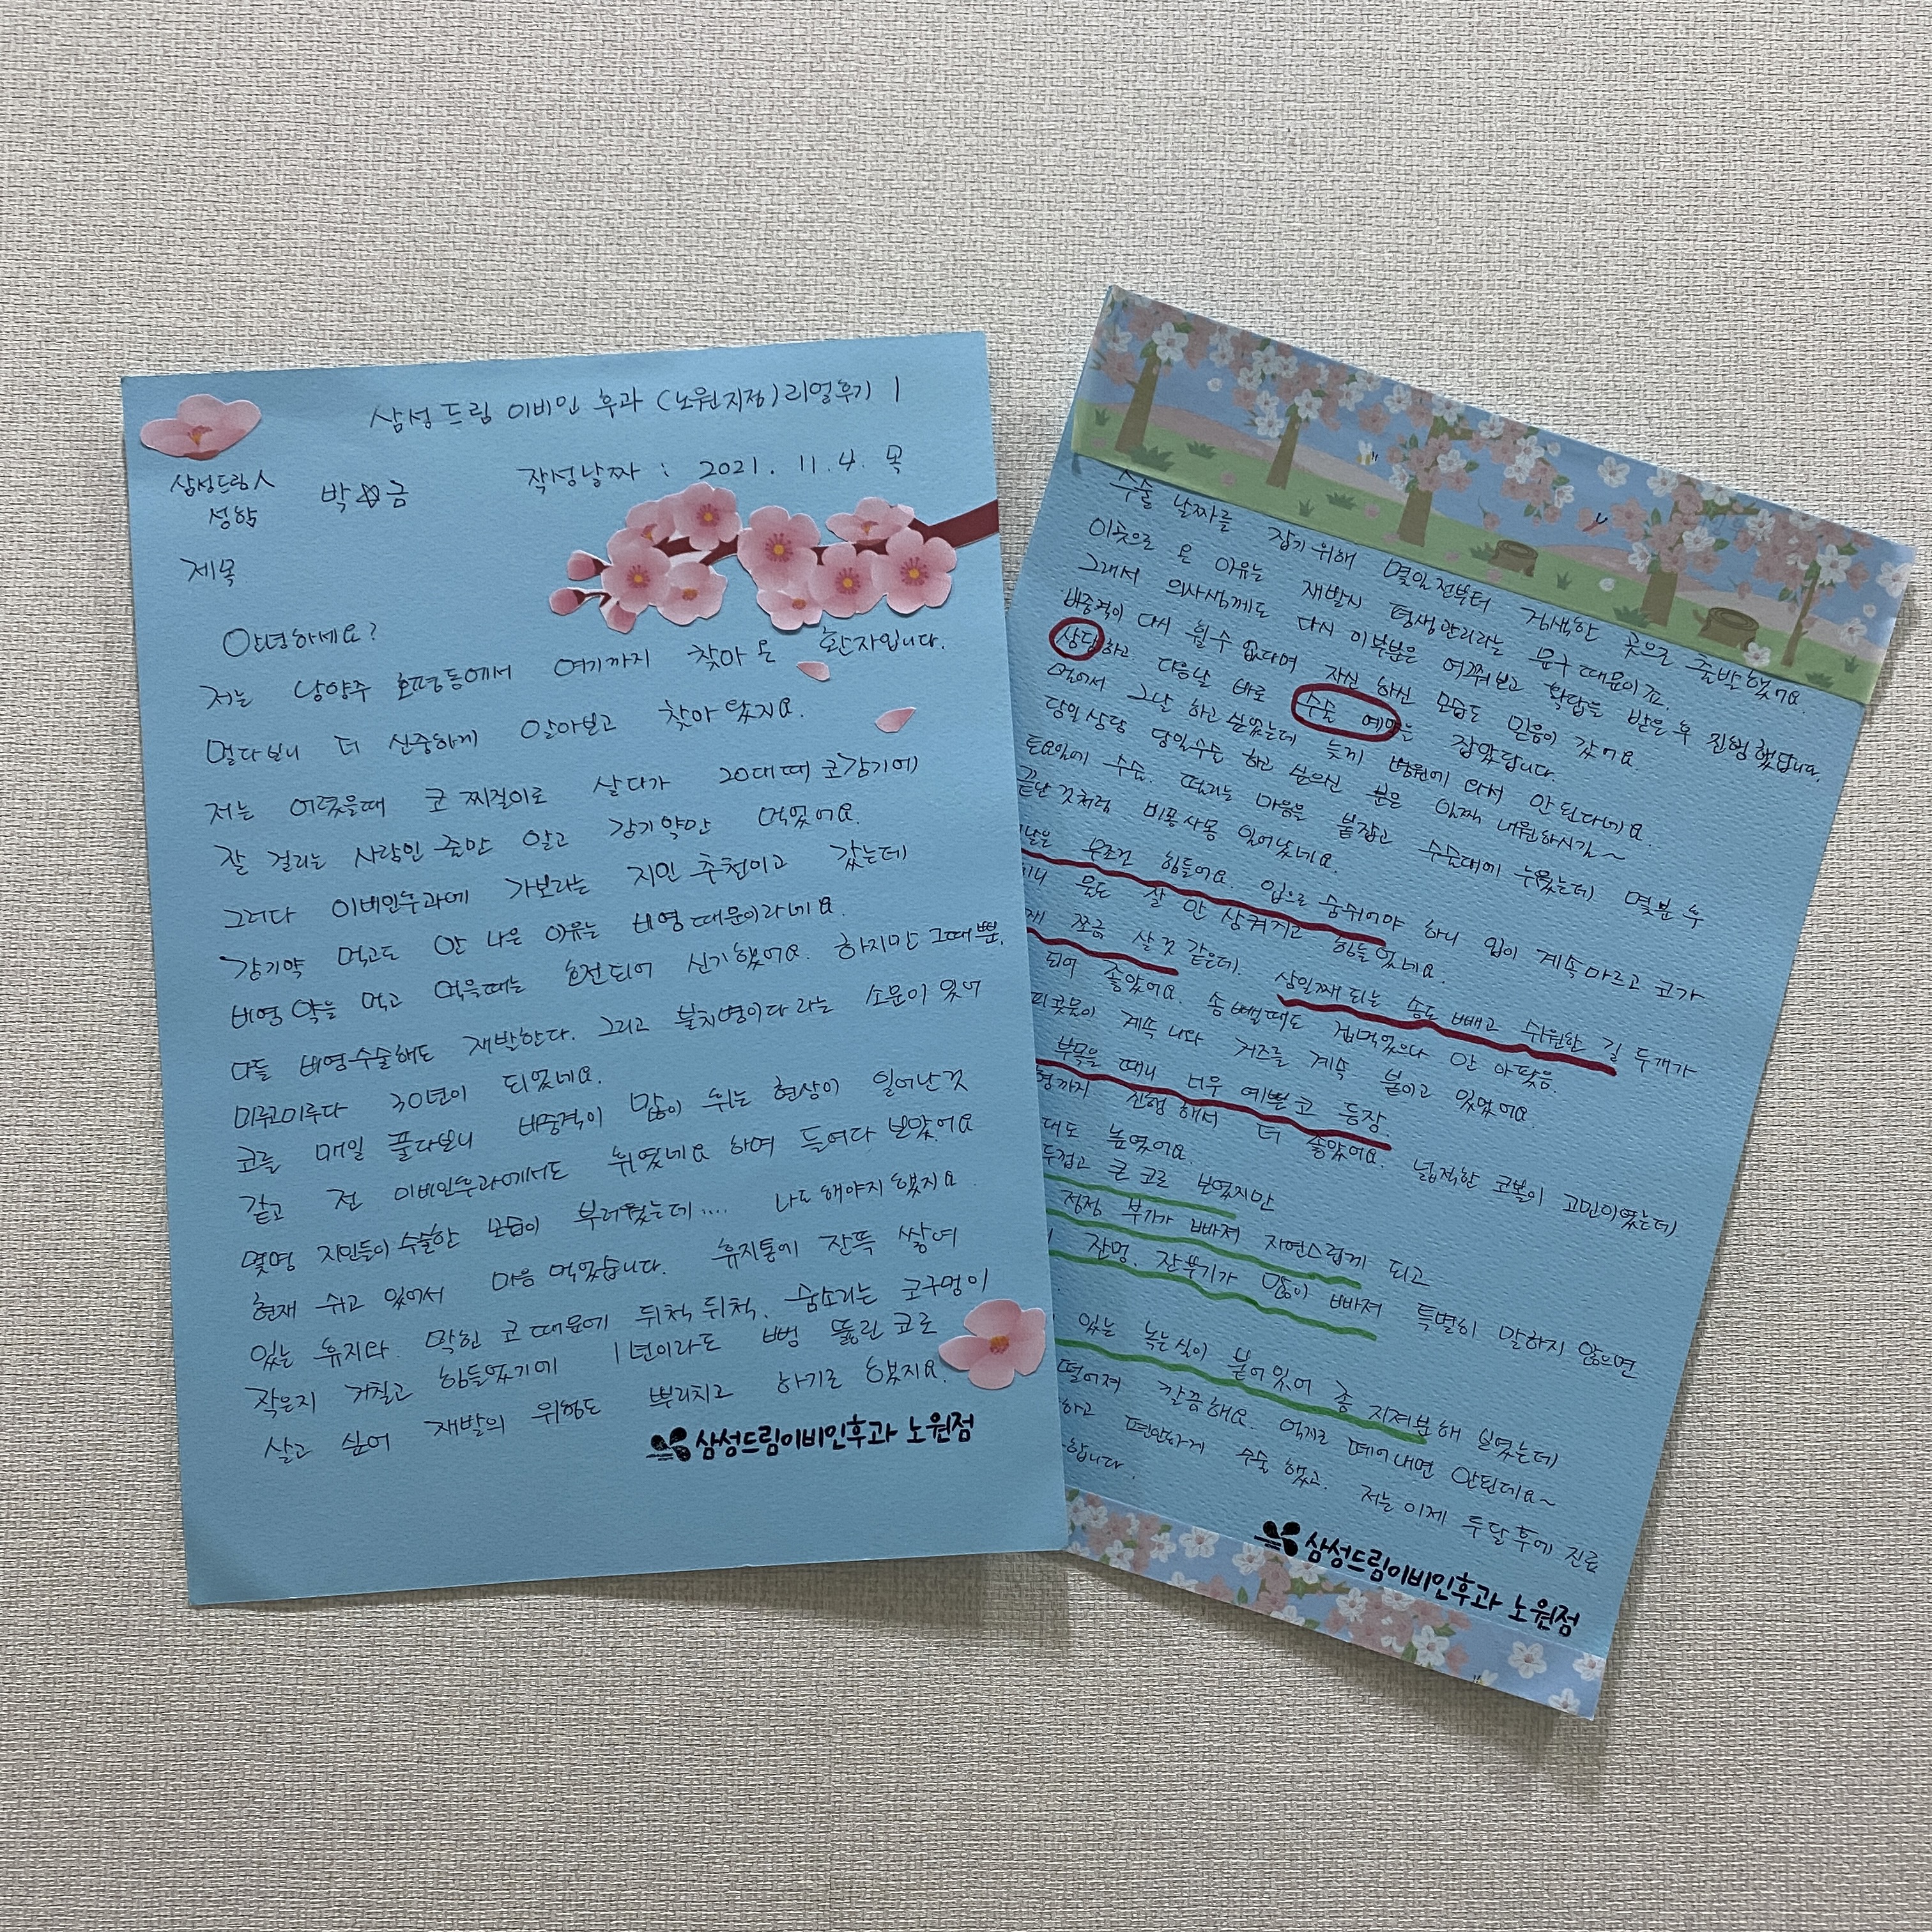 삼성드림 이비인후과 (노원지점) 리얼후기 1
삼성드림人
성함
박☆금
작성날짜 : 2021. 11. 4. 목
제목
안녕하세요?
저는 남양주 호평동에서 여기까지 찾아온 환자입니다.
멀다보니 더 신중하게 알아보고 찾아왔지요.
저는 어렸을때 코찌질이로 살다가 20대때 코감기에
잘 걸리는 사람인 줄만 알고 감기약만 먹었어요.
그러다 이비인후과에 가보라는 지인 추천이고 갔는데
감기약 먹고도 안 나은 이유는 비염때문이라네요.
비염약을 먹고 먹을때는 호전되어 신기했어요. 하지만 그때뿐.
다들 비염수술해도 재발한다. 그리고 불치병이다 라는 소문이 있어
미루고미루다 30년이 되었네요.
코를 매일 풀다보니 비중격이 많이 휘는 현상이 일어난것
같고 전 이비인후과에서도 휘였네요 하며 들여다 보았어요
몇명 지인들이 수술한 모습이 부러웠는데.... 나도해야지했지요.
현재 쉬고 있어서 마음 먹었습니다. 휴지통에 잔뜩 쌓여
있는 휴지와. 막힌 코때문에 뒤척뒤척. 숨소리는 코구멍이
작은지 거칠고 힘들었기에 1년이라도 뻥 뚫린 코로
살고 싶어 재발의 위험도 뿌리치고 하기로 했지요.
삼성드림이비인후과 노원점
수술 날짜를 잡기위해 몇일전부터 검색한 곳으로 출발했어요.
이곳으로 온 이유는 재발시 평생관리라는 문구때문이죠.
그래서 의사샘께도 다시 이부분은 여쭤보고 확답을 받은후 진행했답니다.
비중격이 다시 휠수 없다며 자신 하신 모습도 믿음이 갔어요.
상담하고. 다음날 바로 수술 예약을 잡았답니다.
멀어서 그날 하고싶었는데 늦게 병원에 와서 안된다네요.
당일상담 당일수술 하고 싶으신 분은 일찍 내원하시길~
토요일에 수술. 떨리는 마음을 붙잡고 수술대에 누웠는데 몇분 후
끝난것처럼 비몽사몽 일어났네요.
날은 무조건 힘들어요. 입으로 숨쉬어야 하니 입이 계속마르고 코가
물도 잘 안 삼켜지고 힘들었네요.
쪼금 살것 같은데. 삼일째 되는 솜도 빼고 쉬원한 길 두개가
되어 좋았어요. 솜뺄때도 겁먹었으나 안 아팠음.
피콧물이 계속 나와 거즈를 계속 붙이고 있었어요.
부목을 떼니 너무 예쁜코 등장.
까지 진행해서 더 좋았어요. 넓적한 코볼이 고민이였는데
대도 높였어요.
두껍고 큰 코로 보였지만
점점 부기가 빠져 자연스럽게 되고
잔멍. 잔뿌기가 많이 빠져 특별히 말하지 않으면
있는 녹는실이 붙어있어 좀 지저분해 보였는데
떨어져 깔끔해요. 억지로 떼어내면 안된데요~
하고 편안하게 수술했고. 저는 이제 두달후에 진료
합니다.
삼성드림이비인후과 노원점